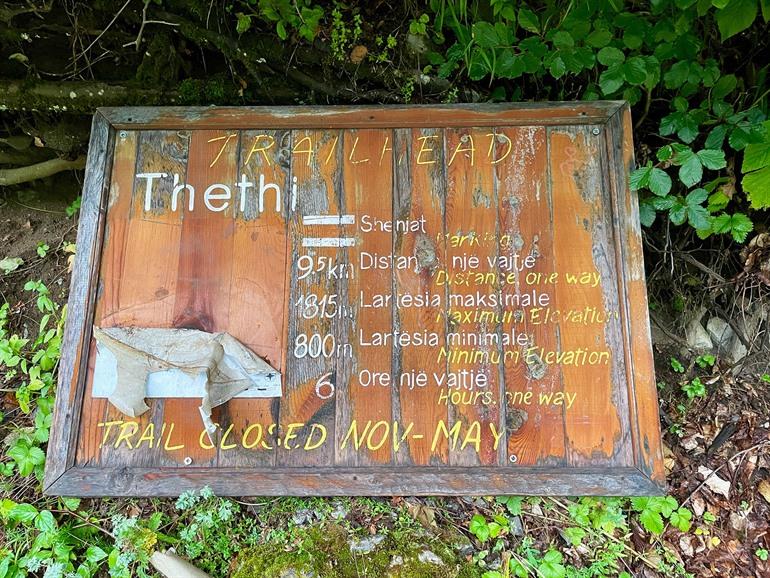 TRAILHEAD
Thethi
Shenjat
Marking
9.5km Distanca një vajtje
Distance, one way
1815m Lartësia maksimale
Maximum Elevation
800m Lartësia minimale
Minimum Elevation
6 Orë një vajtje
Hours, one way
TRAIL CLOSED NOV-MAY